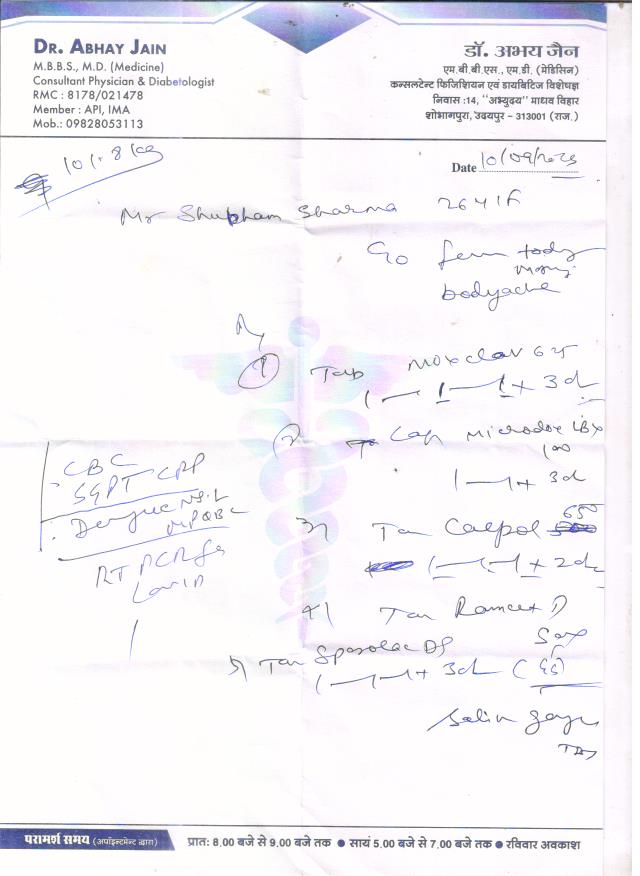 DR. ABHAY JAIN
M.B.B.S., M.D. (Medicine)
Consultant Physician & Diabetologist
RMC : 8178/021478
Member : API, IMA
Mob.: 09828053113
डॉ. अभय जैन
एम.बी.बी.एस., एम.डी. (मेडिसिन)
कन्सलटेन्ट फिजिशियन एवं डायबिटिज विशेषज्ञ
निवास :14, "अभ्युदय" माधव विहार
शोभागपुरा, उदयपुर - 313001 (राज.)
Date 10/09/2023
Mr Shubham Sharma
bodyache
Moxclav 625
1-1-1 + 3d
② Cap Microdox LBX
100
1-1 + 3d
CBC
SGPT CRP
Dengue NS1
RTPCR for
3) Tab Calpol 650
1-1-1 + 2d
4) Tab
5) Tab Sporolac DS
1-1-1 + 3d
परामर्श समय (अपॉइन्टमेन्ट द्वारा) प्रात: 8.00 बजे से 9.00 बजे तक ● सायं 5.00 बजे से 7.00 बजे तक ● रविवार अवकाश